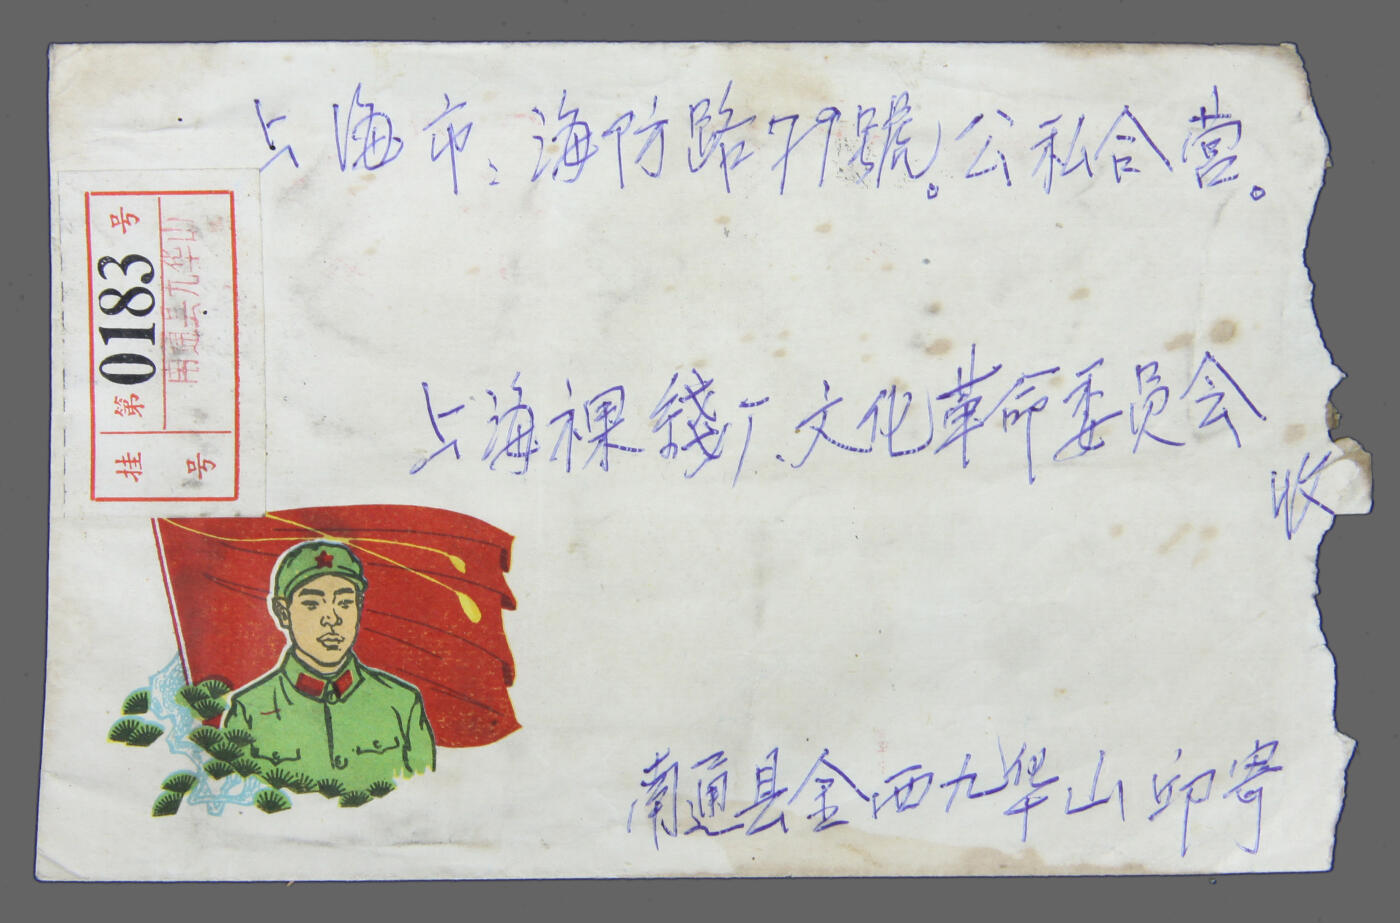 上海市：海防路79號。公私合营。
上海裸綫厂、文化革命委员会
收
南通县金西九华山邱寄
挂号
第0183号
南通县九华山